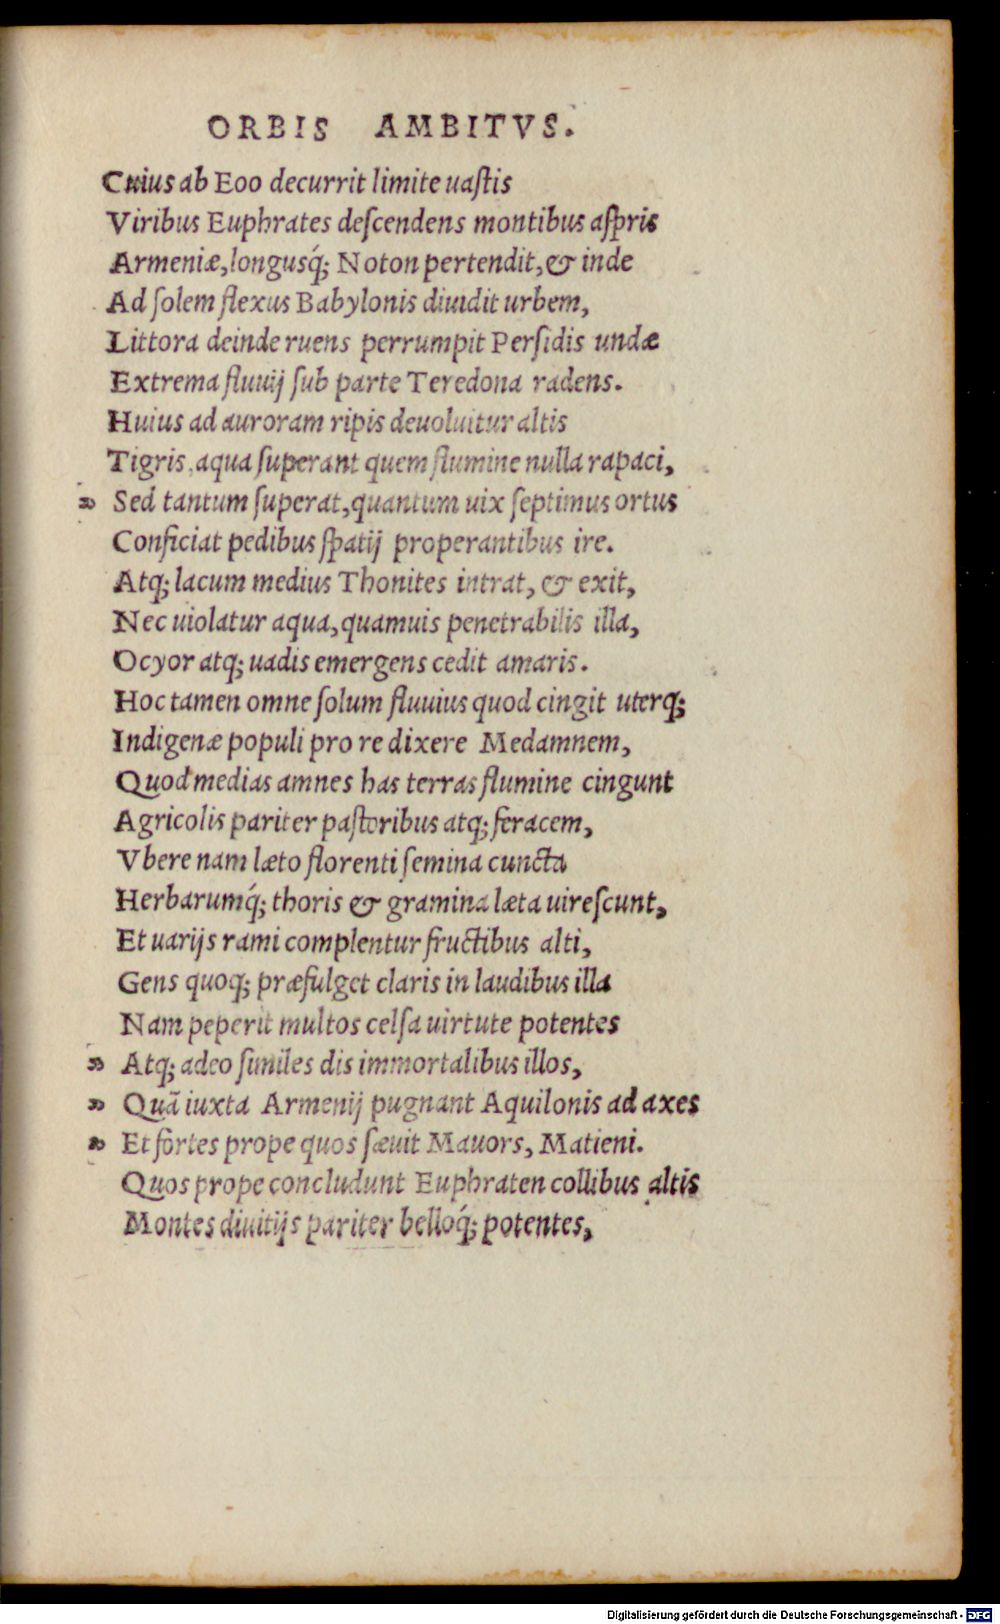 ORBIS AMBITVS.
Cuius ab Eoo decurrit limite uastis
Viribus Euphrates descendens montibus aspris
Armeniæ, longusq́; Noton pertendit, & inde
Ad solem flexus Babylonis diuidit urbem,
Littora deinde ruens perrumpit Persidis undæ
Extrema fluuij sub parte Teredona radens.
Huius ad auroram ripis deuoluitur altis
Tigris, aqua superant quem flumine nulla rapaci,
„ Sed tantum superat, quantum uix septimus ortus
Conficiat pedibus spatij properantibus ire.
Atq; lacum medius Thonites intrat, & exit,
Nec uiolatur aqua, quamuis penetrabilis illa,
Ocyor atq; uadis emergens cedit amaris.
Hoc tamen omne solum fluuius quod cingit uterq;
Indigenæ populi pro re dixere Medamnem,
Quod medias amnes has terras flumine cingunt
Agricolis pariter pastoribus atq; feracem,
Vbere nam læto florenti semina cuncta
Herbarumq́; thoris & gramina læta uirescunt,
Et uarijs rami complentur fructibus alti,
Gens quoq; præfulget claris in laudibus illa
Nam peperit multos celsa uirtute potentes
„ Atq; adeo similes dis immortalibus illos,
„ Quã iuxta Armenij pugnant Aquilonis ad axes
„ Et fortes prope quos sæuit Mauors, Matieni.
Quos prope concludunt Euphraten collibus altis
Montes diuitijs pariter belloq́; potentes,
Digitalisierung gefördert durch die Deutsche Forschungsgemeinschaft - DFG